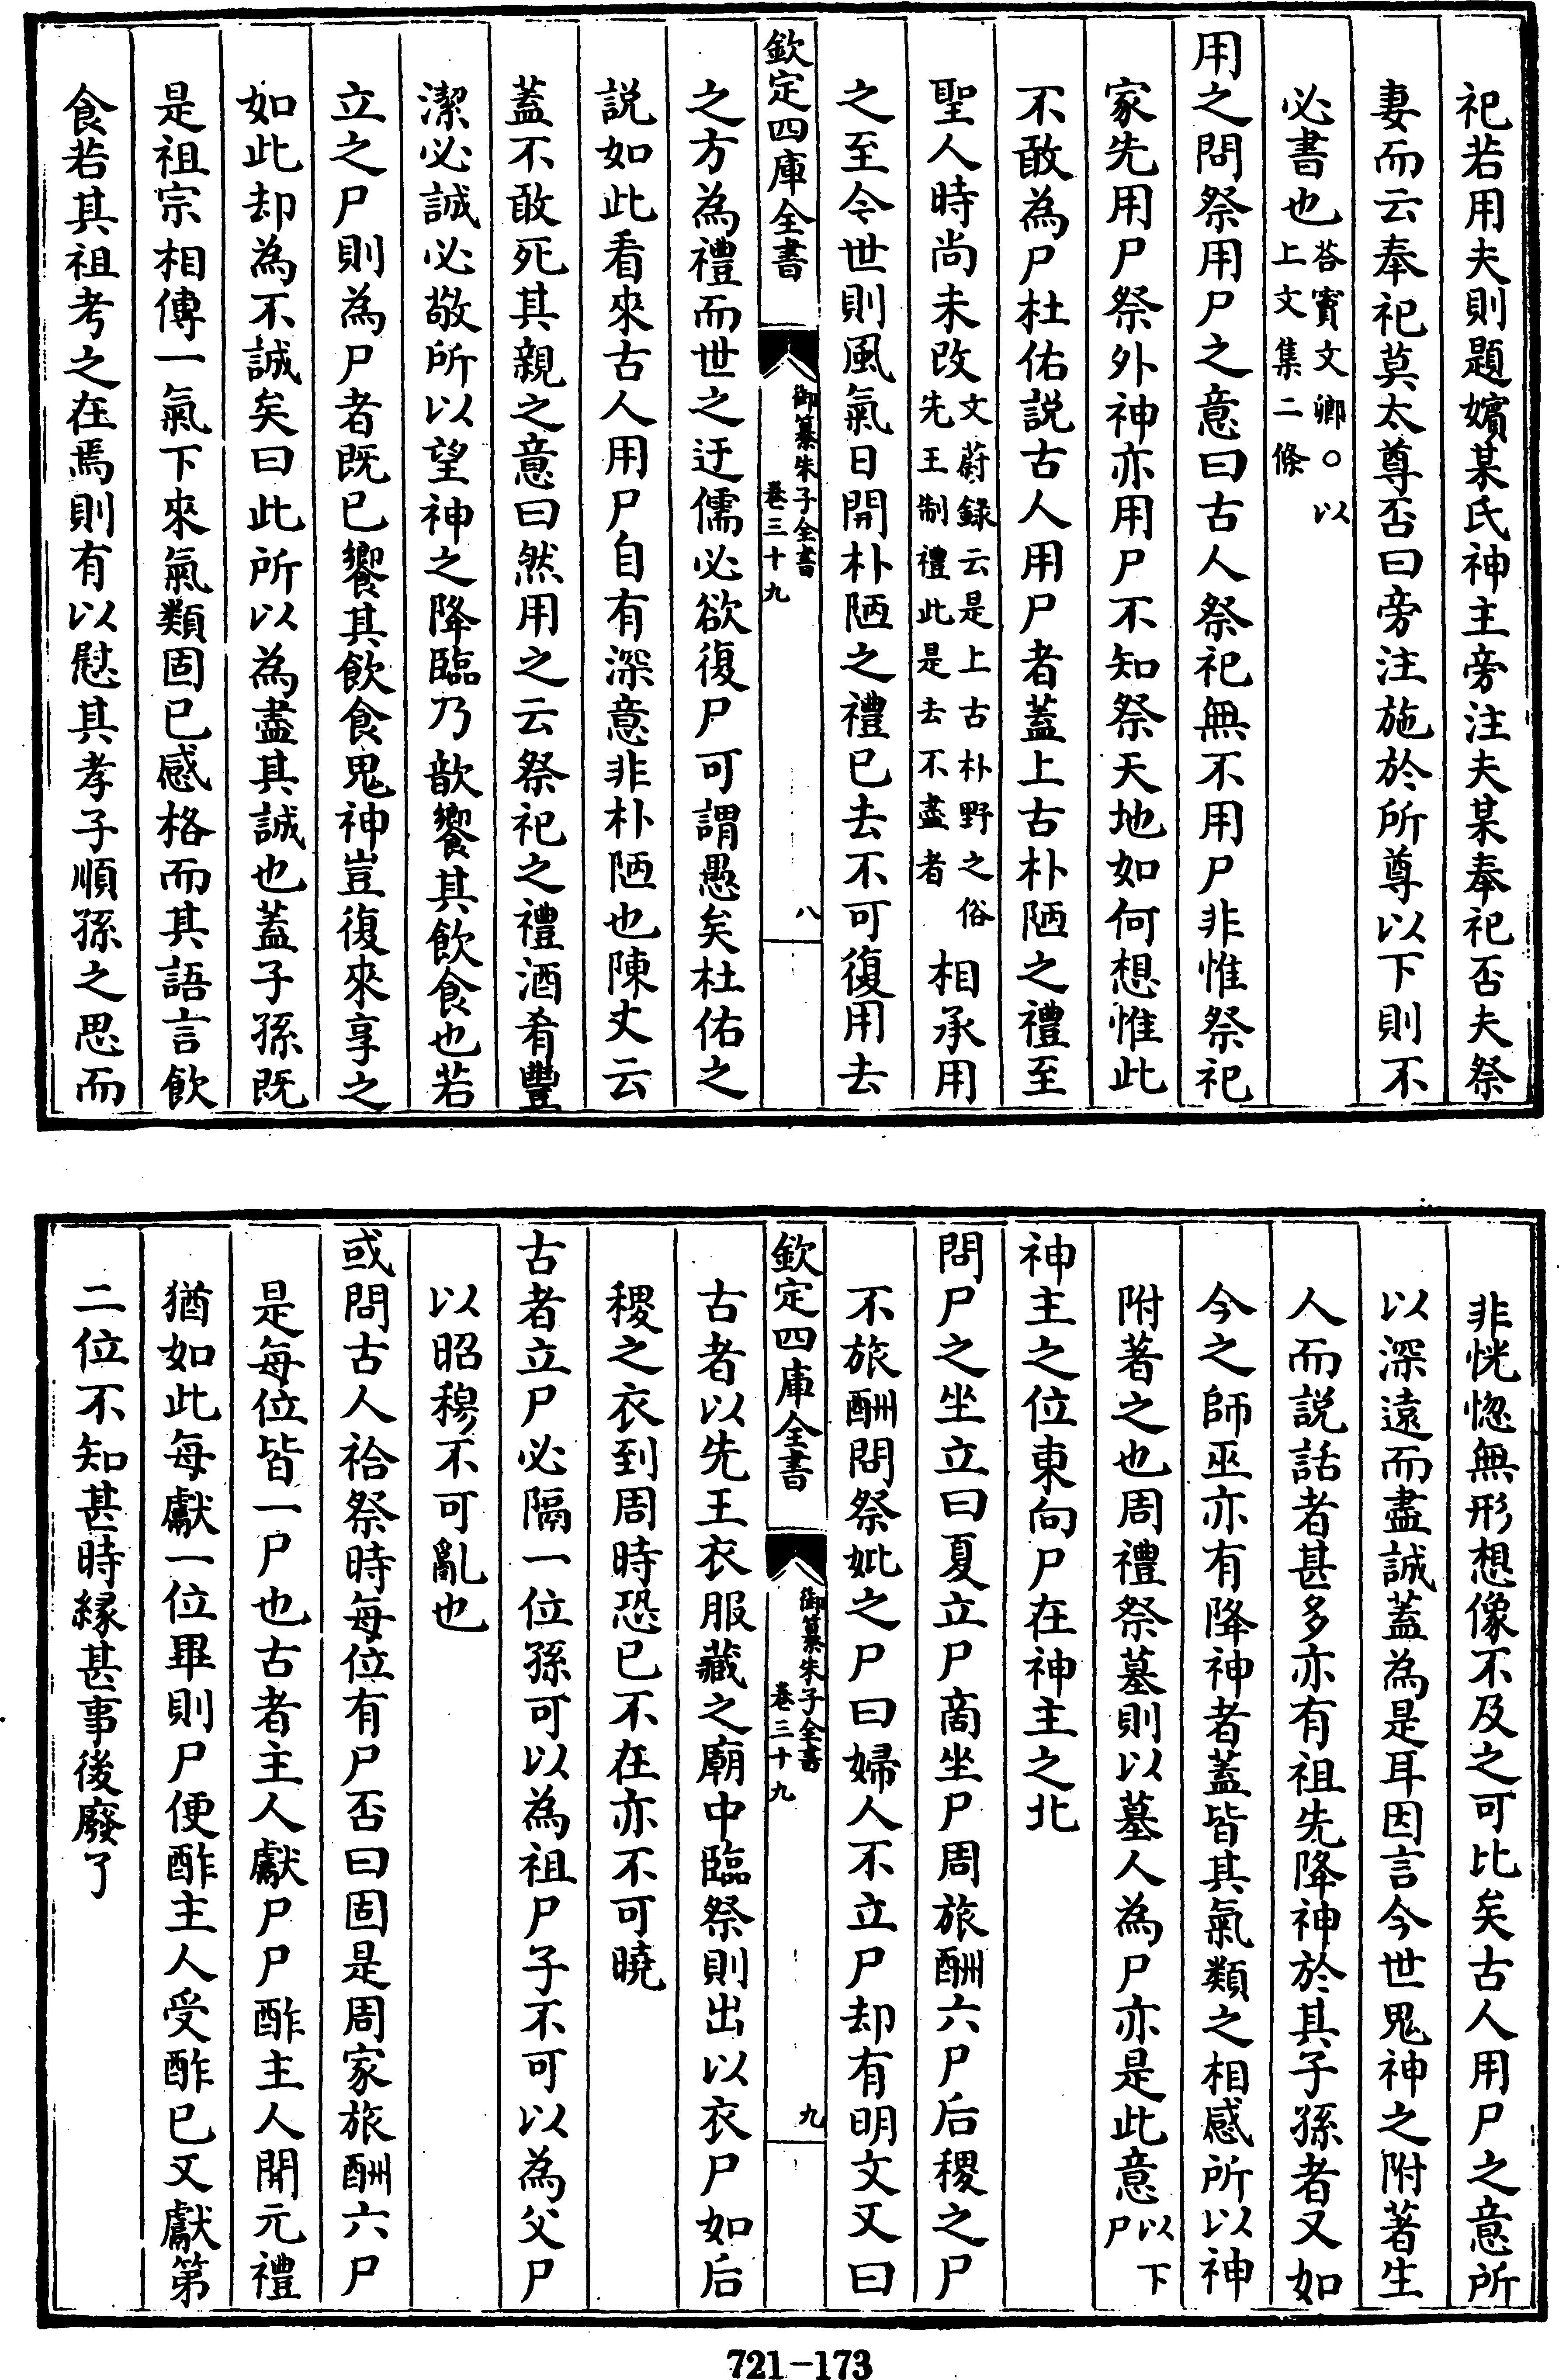 祀若用夫則題嬪某氏神主旁注夫某奉祀否夫祭
妻而云奉祀莫太尊否曰旁注施於所尊以下則不
必書也答竇文卿〇以上文集二條
用之問祭用尸之意曰古人祭祀無不用尸非惟祭祀
家先用尸祭外神亦用尸不知祭天地如何想惟此
不敢為尸杜佑説古人用尸者蓋上古朴陋之禮至
聖人時尚未改文蔚録云是上古朴野之俗先王制禮此是去不盡者相承用
之至今世則風氣日開朴陋之禮已去不可復用去
欽定四庫全書
御纂朱子全書
卷三十九
八
之方為禮而世之迂儒必欲復尸可謂愚矣杜佑之
説如此看來古人用尸自有深意非朴陋也陳丈云
蓋不敢死其親之意曰然用之云祭祀之禮酒肴豐
潔必誠必敬所以望神之降臨乃歆饗其飲食也若
立之尸則為尸者既已饗其飲食鬼神豈復來享之
如此却為不誠矣曰此所以為盡其誠也蓋子孫既
是祖宗相傳一氣下來氣類固已感格而其語言飲
食若其祖考之在焉則有以慰其孝子順孫之思而
非恍惚無形想像不及之可比矣古人用尸之意所
以深遠而盡誠蓋為是耳因言今世鬼神之附著生
人而説話者甚多亦有祖先降神於其子孫者又如
今之師巫亦有降神者蓋皆其氣類之相感所以神
附著之也周禮祭墓則以墓人為尸亦是此意以下尸
神主之位東向尸在神主之北
問尸之坐立曰夏立尸商坐尸周旅酬六尸后稷之尸
不旅酬問祭妣之尸曰婦人不立尸却有明文又曰
欽定四庫全書
御纂朱子全書
卷三十九
九
古者以先王衣服藏之廟中臨祭則出以衣尸如后
稷之衣到周時恐已不在亦不可曉
古者立尸必隔一位孫可以為祖尸子不可以為父尸
以昭穆不可亂也
或問古人祫祭時每位有尸否曰固是周家旅酬六尸
是每位皆一尸也古者主人獻尸尸酢主人開元禮
猶如此每獻一位畢則尸便酢主人受酢已又獻第
二位不知甚時縁甚事後廢了
721-173